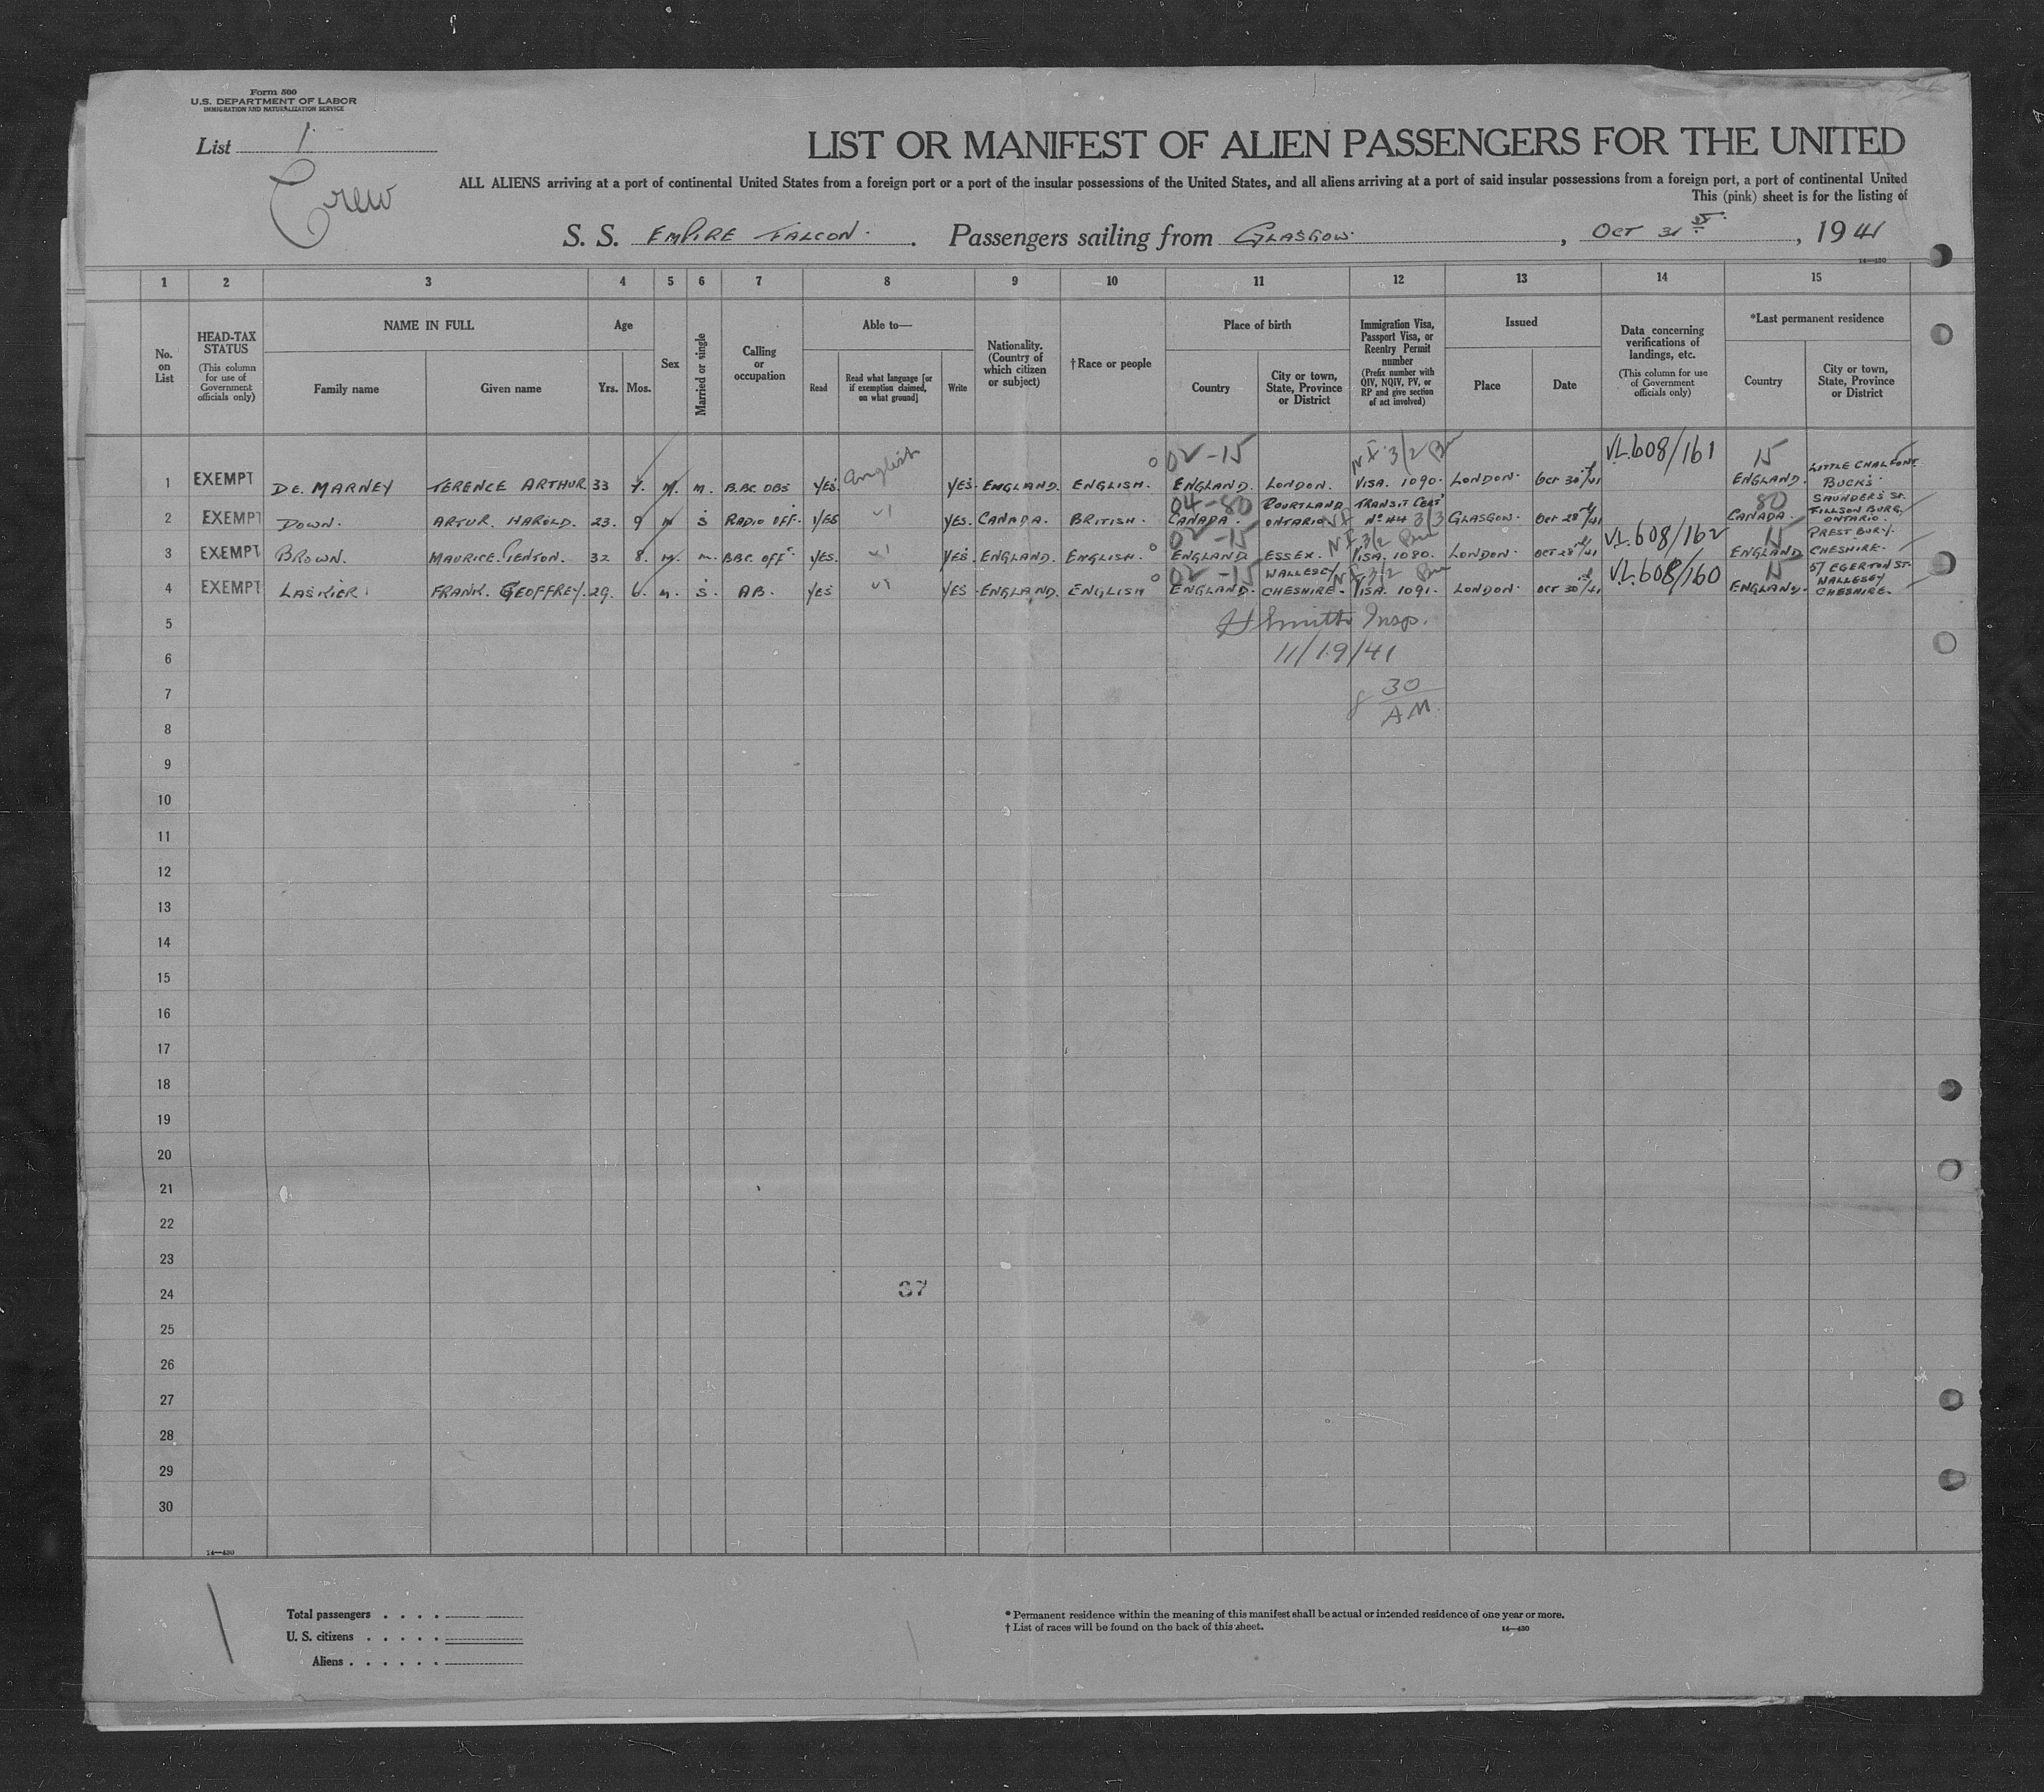 Form 500
U.S. DEPARTMENT OF LABOR
IMMIGRATION AND NATURALIZATION SERVICE
List 1.
Crew
LIST OR MANIFEST OF ALIEN PASSENGERS FOR THE UNITED
ALL ALIENS arriving at a port of continental United States from a foreign port or a port of the insular possessions of the United States, and all aliens arriving at a port of said insular possessions from a foreign port, a port of continental United
This (pink) sheet is for the listing of
S. S. EMPIRE FALCON. Passengers sailing from GLASGOW. , OCT 31st , 1941
14—430
1 2 3 4 5 6 7 8 9 10 11 12 13 14 15
No. on List
HEAD-TAX STATUS (This column for use of Government officials only)
NAME IN FULL
Family name
Given name
Age
Yrs.
Mos.
Sex
Married or single
Calling or occupation
Able to—
Read
Read what language [or if exemption claimed, on what ground]
Write
Nationality. (Country of which citizen or subject)
†Race or people
Place of birth
Country
City or town, State, Province or District
Immigration Visa, Passport Visa, or Reentry Permit number (Prefix number with QIV, NQIV, PV, or RP and give section of act involved)
Issued
Place
Date
Data concerning verifications of landings, etc. (This column for use of Government officials only)
*Last permanent residence
Country
City or town, State, Province or District
02-15 3/2 VL.608/161 15
1 EXEMPT DE. MARNEY TERENCE ARTHUR 33 M. M. B.B.C. OBS YES. English YES. ENGLAND. ENGLISH. ENGLAND. LONDON. VISA. 1090. LONDON. Oct 30th/41 ENGLAND. LITTLE CHALFONT BUCKS.
04-80 80
2 EXEMPT DOWN. ARTUR. HAROLD. 23. 9 M S RADIO OFF. YES YES. CANADA. BRITISH. CANADA. COURTLAND ONTARIO TRANSIT CERT No 44 3/3 GLASGOW. Oct 28th/41 CANADA. SAUNDERS ST. TILLSON BURG, ONTARIO.
02-15 3/2 VL.608/162 15
3 EXEMPT BROWN. MAURICE. 32 8. M. M. BBC. OFFr. YES. YES. ENGLAND. ENGLISH. ENGLAND ESSEX. VISA. 1080. LONDON. OCT 28th/41 ENGLAND PREST BURY. CHESHIRE.
02-15 3/2 VL.608/160 15
4 EXEMPT LASKIER. FRANK. GEOFFREY. 29. 6. M. S. AB. YES YES. ENGLAND. ENGLISH ENGLAND. WALLESEY CHESHIRE. VISA. 1091. LONDON. OCT 30th/41 ENGLAND. 57 EGERTON ST. WALLESEY CHESHIRE.
5 H Smith Insp.
6 11/19/41
7 8 30 AM.
8
9
10
11
12
13
14
15
16
17
18
19
20
21
22
23
24 37
25
26
27
28
29
30
14—430
Total passengers . . . .
U. S. citizens . . . . .
Aliens . . . . . .
* Permanent residence within the meaning of this manifest shall be actual or intended residence of one year or more.
† List of races will be found on the back of this sheet.
14—430